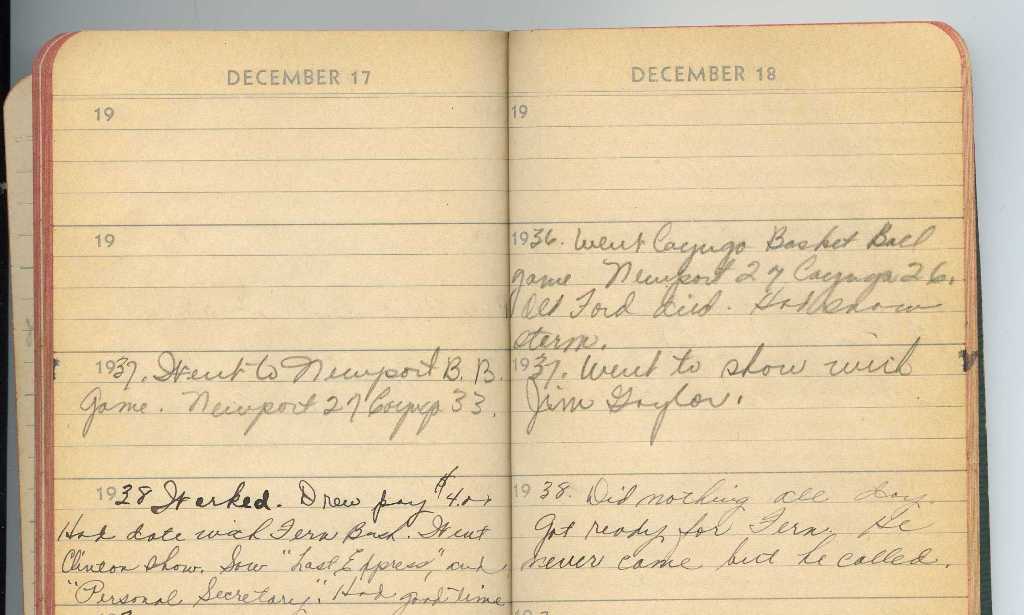 DECEMBER 17
19
19
1937. Went to Newport B. B.
Game. Newport 27 Cayuga 33.
1938 Worked. Drew pay $4.00
Had date with Fern Bush. Went
Clinton Show. Saw "Last Express", and
"Personal Secretary". Had good time
DECEMBER 18
19
1936. Went Cayuga Basket Ball
game Newport 27 Cayuga 26.
Old Ford died. Had snow
storm.
1937. Went to show with
Jim Gaylor.
1938. Did nothing all day.
Got ready for Fern. He
never came but he called.